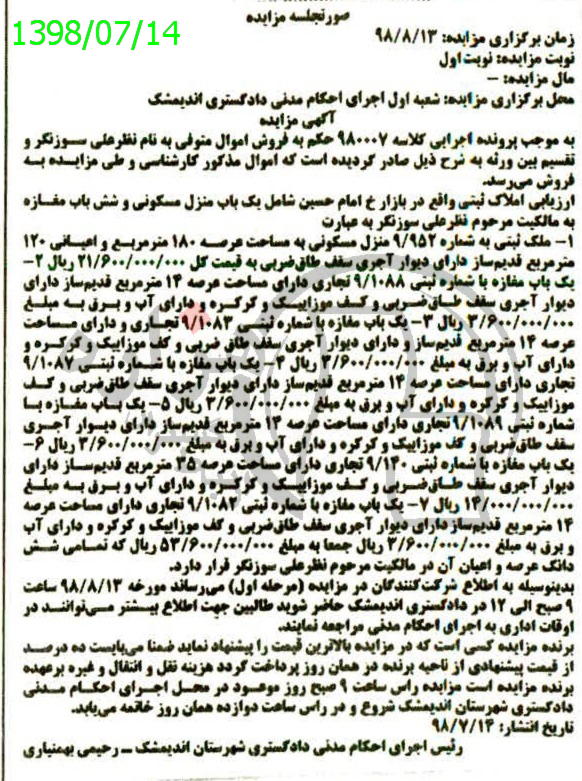 صورتجلسه مزایده
1398/07/14
زمان برگزاری مزایده: ۹۸/۸/۱۳
نوبت مزایده: نوبت اول
مال مزایده: –
محل برگزاری مزایده: شعبه اول اجرای احکام مدنی دادگستری اندیمشک
آگهی مزایده
به موجب پرونده اجرایی کلاسه ۹۸۰۰۰۷ حکم به فروش اموال متوفی به نام نظرعلی سوزنگر و
تقسیم بین ورثه به شرح ذیل صادر گردیده است که اموال مذکور کارشناسی و طی مزایده به
فروش می‌رسد.
ارزیابی املاک ثبتی واقع در بازار خ امام حسین شامل یک باب منزل مسکونی و شش باب مغازه
به مالکیت مرحوم نظرعلی سوزنگر به عبارت
۱- ملک ثبتی به شماره ۹/۹۵۲ منزل مسکونی به مساحت عرصه ۱۸۰ مترمربع و اعیانی ۱۲۰
مترمربع قدیم‌ساز دارای دیوار آجری سقف طاق‌ضربی به قیمت کل ۲۱/۶۰۰/۰۰۰/۰۰۰ ریال ۲-
یک باب مغازه با شماره ثبتی ۹/۱۰۸۸ تجاری دارای مساحت عرصه ۱۴ مترمربع قدیم‌ساز دارای
دیوار آجری سقف طاق‌ضربی و کف موزاییک و کرکره و دارای آب و برق به مبلغ
۳/۶۰۰/۰۰۰/۰۰۰ ریال ۳- یک باب مغازه با شماره ثبتی ۹/۱۰۸۳ تجاری و دارای مساحت
عرصه ۱۴ مترمربع قدیم‌ساز و دارای دیوار آجری سقف طاق ضربی و کف موزاییک و کرکره و
دارای آب و برق به مبلغ ۳/۶۰۰/۰۰۰/۰۰۰ ریال ۴- یک باب مغازه با شماره ثبتی ۹/۱۰۸۷
تجاری دارای مساحت عرصه ۱۴ مترمربع قدیم‌ساز دارای دیوار آجری سقف طاق‌ضربی و کف
موزاییک و کرکره و دارای آب و برق به مبلغ ۳/۶۰۰/۰۰۰/۰۰۰ ریال ۵- یک باب مغازه با
شماره ثبتی ۹/۱۰۸۹ تجاری دارای مساحت عرصه ۱۴ مترمربع قدیم‌ساز دارای دیوار آجری
سقف طاق‌ضربی و کف موزاییک و کرکره و دارای آب و برق به مبلغ ۳/۶۰۰/۰۰۰/۰۰۰ ریال ۶-
یک باب مغازه با شماره ثبتی ۹/۱۴۰ تجاری دارای مساحت عرصه ۳۵ مترمربع قدیم‌ساز دارای
دیوار آجری سقف طاق‌ضربی و کف موزاییک و کرکره و دارای آب و برق به مبلغ
۱۴/۰۰۰/۰۰۰/۰۰۰ ریال ۷- یک باب مغازه با شماره ثبتی ۹/۱۰۸۲ تجاری دارای مساحت عرصه
۱۴ مترمربع قدیم‌ساز دارای دیوار آجری سقف طاق‌ضربی و کف موزاییک و کرکره و دارای آب
و برق به مبلغ ۳/۶۰۰/۰۰۰/۰۰۰ ریال جمعا به مبلغ ۵۳/۶۰۰/۰۰۰/۰۰۰ ریال که تمامی شش
دانگ عرصه و اعیان آن در مالکیت مرحوم نظرعلی سوزنگر قرار دارد.
بدینوسیله به اطلاع شرکت‌کنندگان در مزایده (مرحله اول) می‌رساند مورخه ۹۸/۸/۱۳ ساعت
۹ صبح الی ۱۲ در دادگستری اندیمشک حاضر شوید طالبین جهت اطلاع بیشتر می‌توانند در
اوقات اداری به اجرای احکام مدنی مراجعه نمایند.
برنده مزایده کسی است که در مزایده بالاترین قیمت را پیشنهاد نماید ضمنا می‌بایست ده درصد
از قیمت پیشنهادی از ناحیه برنده در همان روز پرداخت گردد هزینه نقل و انتقال و غیره برعهده
برنده مزایده است مزایده راس ساعت ۹ صبح روز موعود در محل اجرای احکام مدنی
دادگستری شهرستان اندیمشک شروع و در راس ساعت دوازده همان روز خاتمه می‌یابد.
تاریخ انتشار: ۹۸/۷/۱۴
رئیس اجرای احکام مدنی دادگستری شهرستان اندیمشک – رحیمی بهمنیاری